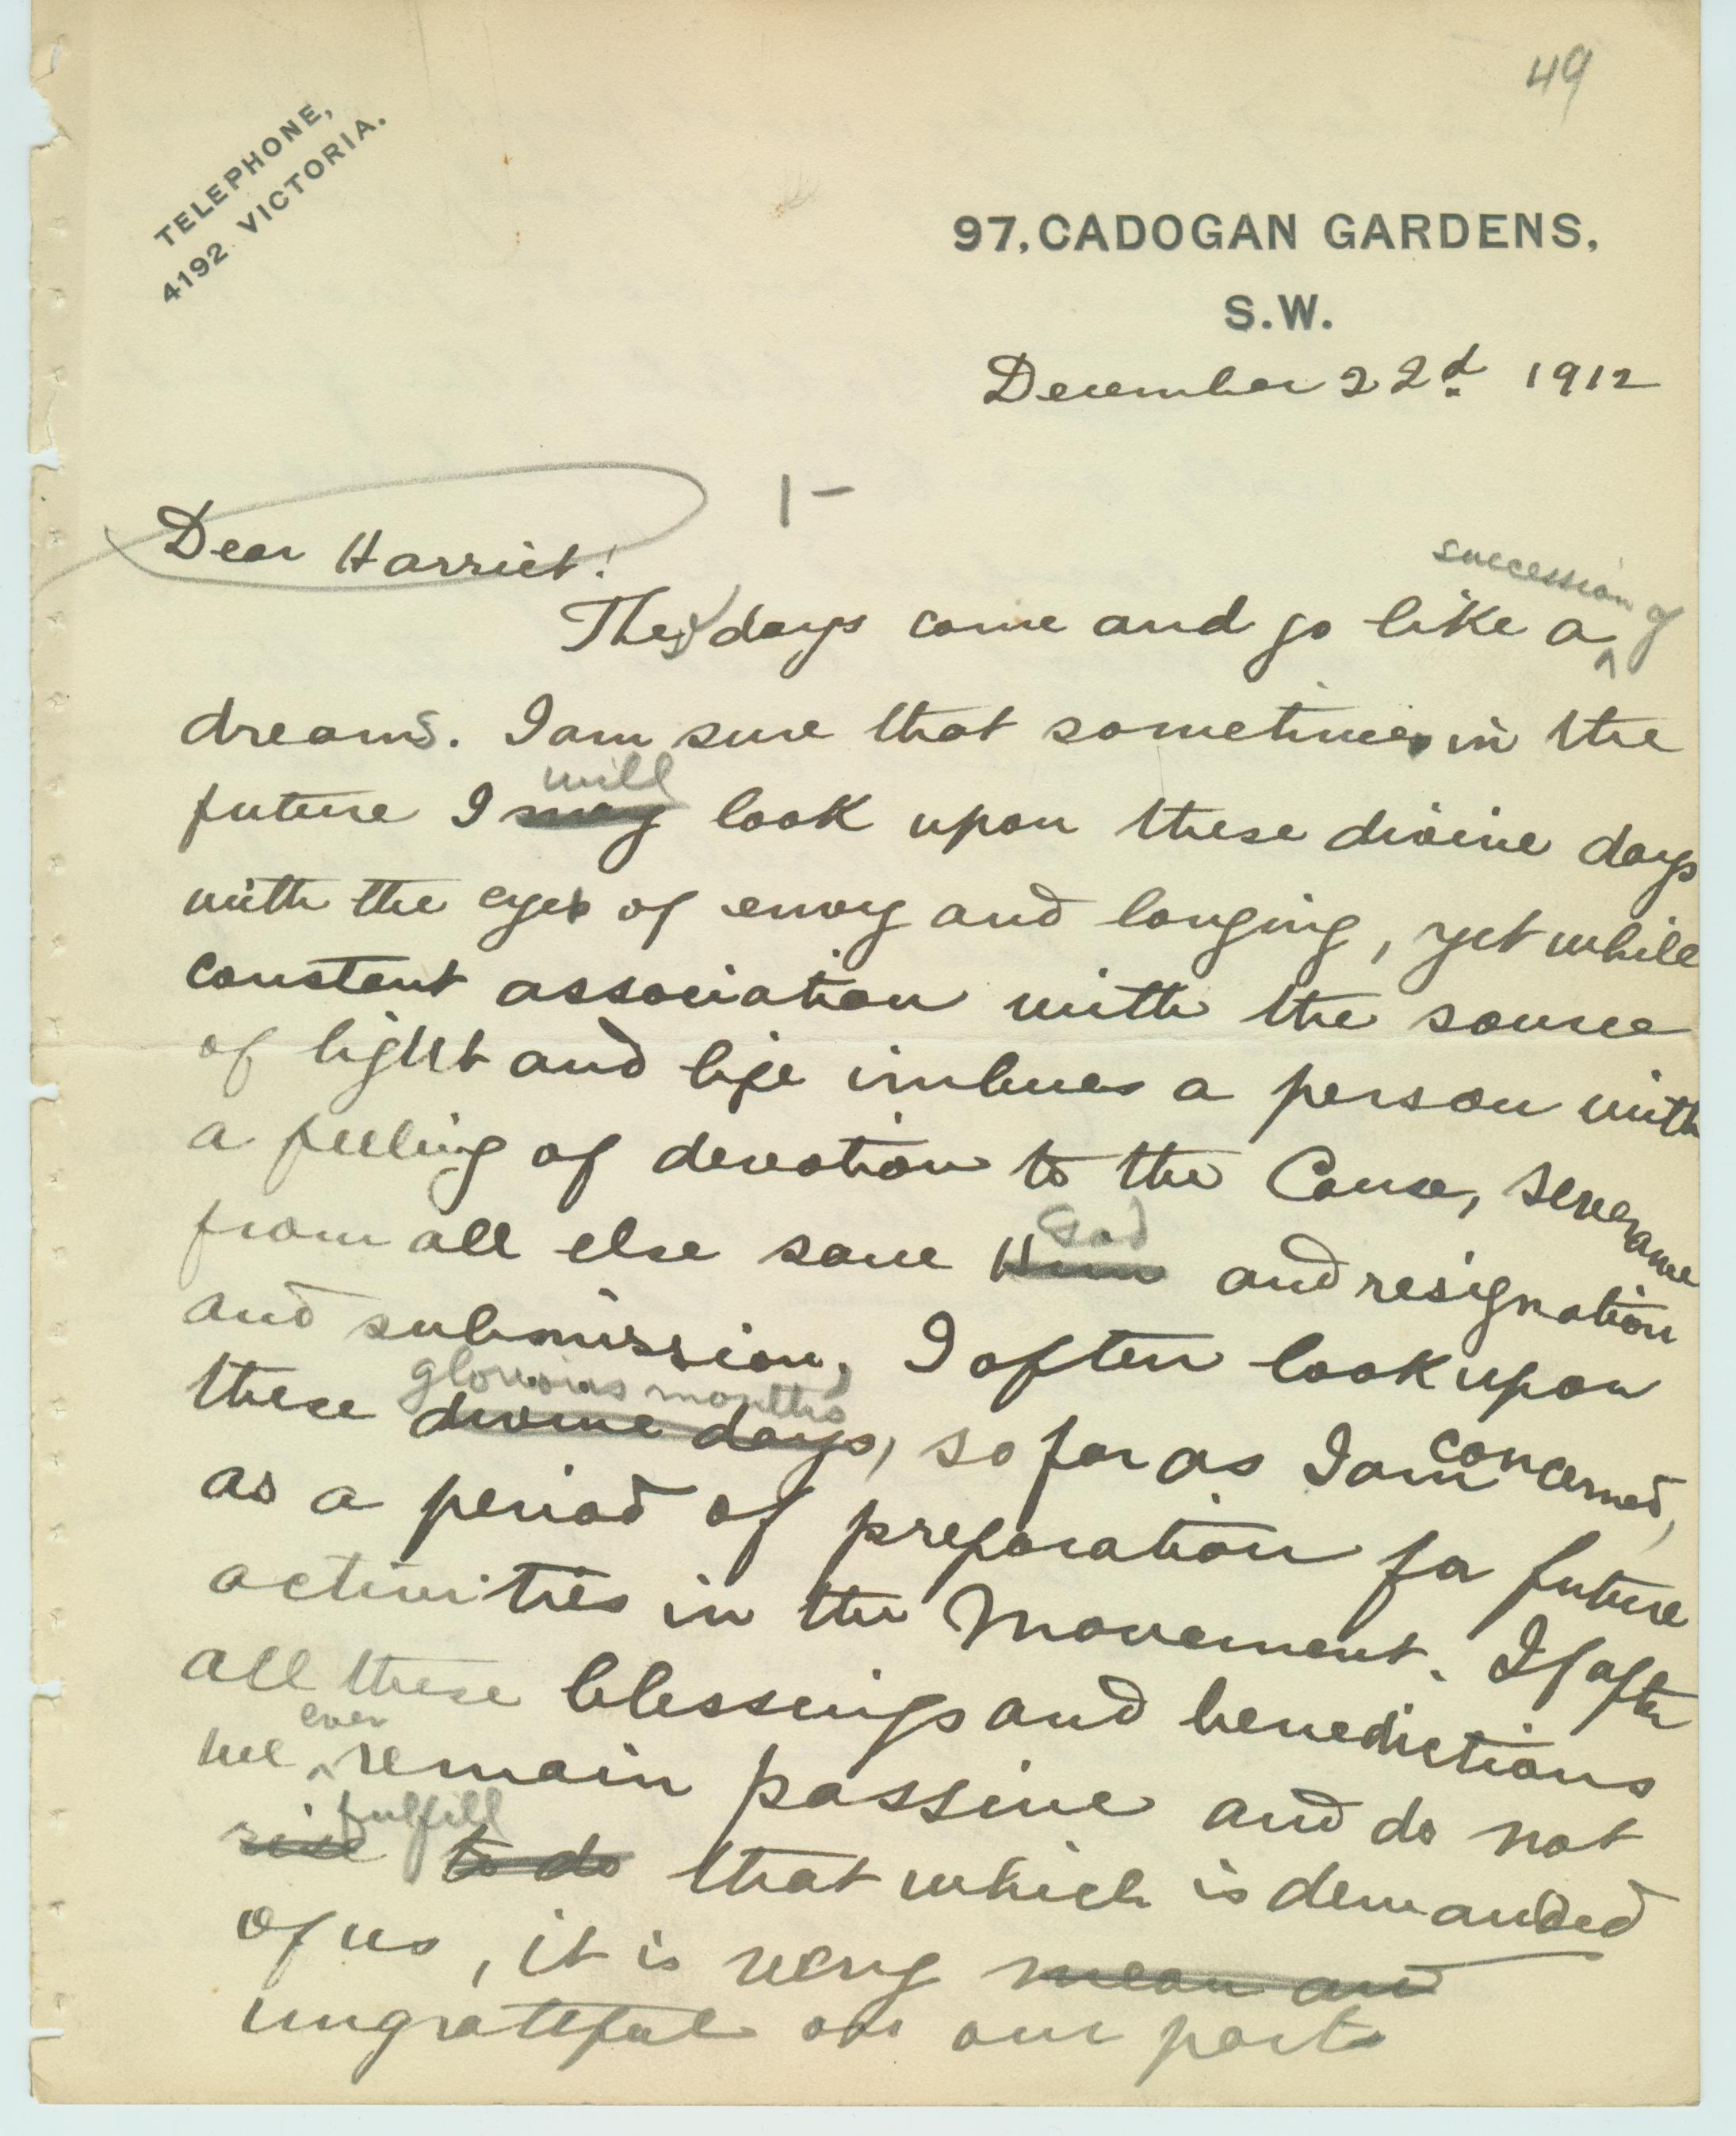 49
TELEPHONE,
4192 VICTORIA.
97, CADOGAN GARDENS,
S.W.
December 22d. 1912
1-
Dear Harriet!
succession of
The days come and go like a
dreams. I am sure that sometimes in the
will
future I may look upon these divine days
with the eyes of envy and longing, yet while
constant association with the source
of light and life imbues a person with
a feeling of devotion to the Cause, severance
God
from all else save Him and resignation
and submission, I often look upon
glorious months
these divine days, so far as I am concerned,
as a period of preparation for future
activities in the Movement. If after
all these blessings and benedictions
ever
we remain passive and do not
fulfill
rise to do that which is demanded
of us, it is very mean and
ungrateful on our part